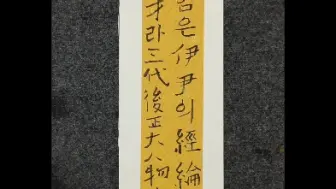 은 伊尹의 經綸
才라 三代後 正大人物